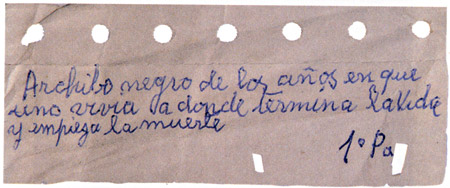 Archibo negro de los años en que
uno vivia a donde termina la vida
y empieza la muerte
1º Pa